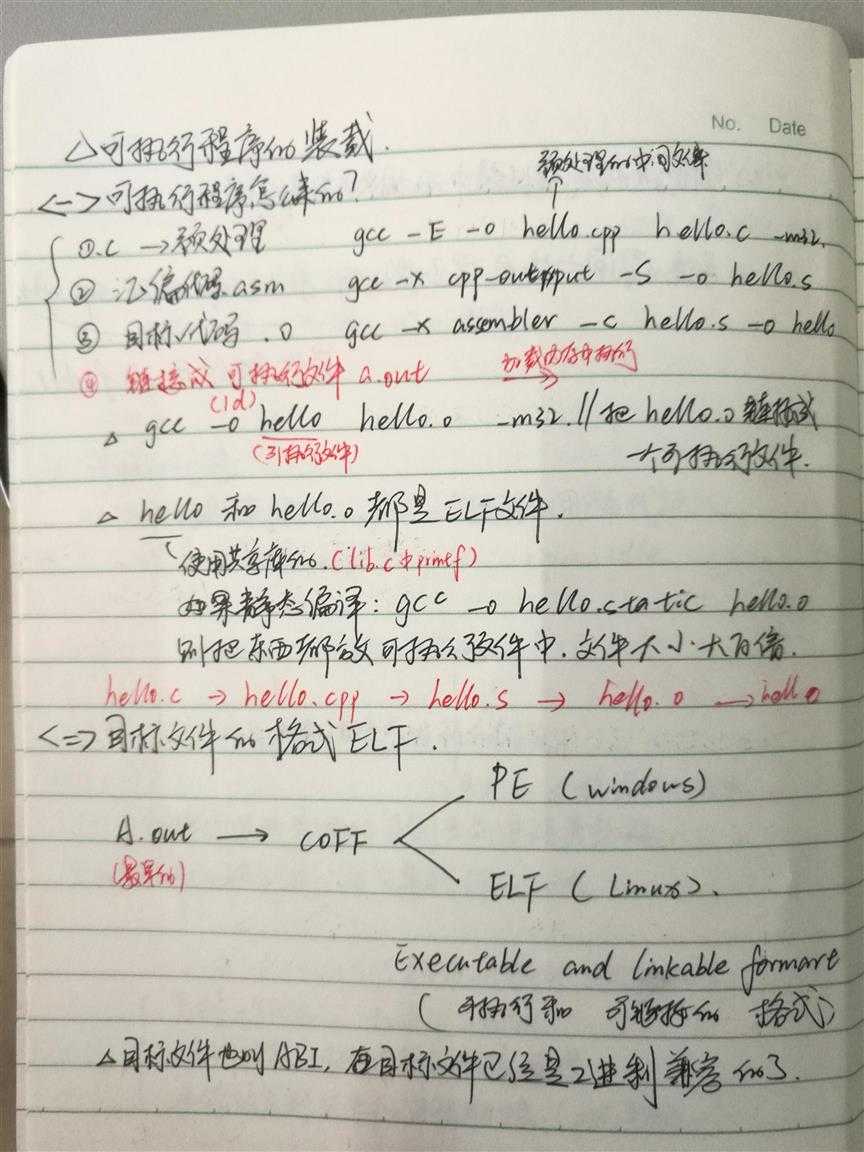 No. Date
△可执行程序的装载.
预处理的中间文件
<一>可执行程序怎么来的?
①.c →预处理 gcc -E -o hello.cpp hello.c -m32.
② 汇编代码.asm gcc -x cpp-output -S -o hello.s
③ 目标代码 .o gcc -x assembler -c hello.s -o hello
④ 链接成可执行文件 a.out 加载内存中执行
(ld)
△ gcc -o hello hello.o -m32. // 把hello.o链接成
(可执行文件) 一个可执行文件.
△ hello 和 hello.o 都是ELF文件.
使用共享库的.(lib.c中printf)
如果静态编译: gcc -o hello.static hello.o
则把东西都放可执行文件中.文件大小大百倍.
hello.c → hello.cpp → hello.s → hello.o → hello
<二>目标文件的格式ELF.
PE (windows)
A.out → COFF
(最早的)
ELF (Linux).
Executable and linkable formart
(可执行和 可链接的 格式)
△目标文件也叫ABI, 在目标文件已经是2进制兼容的了.